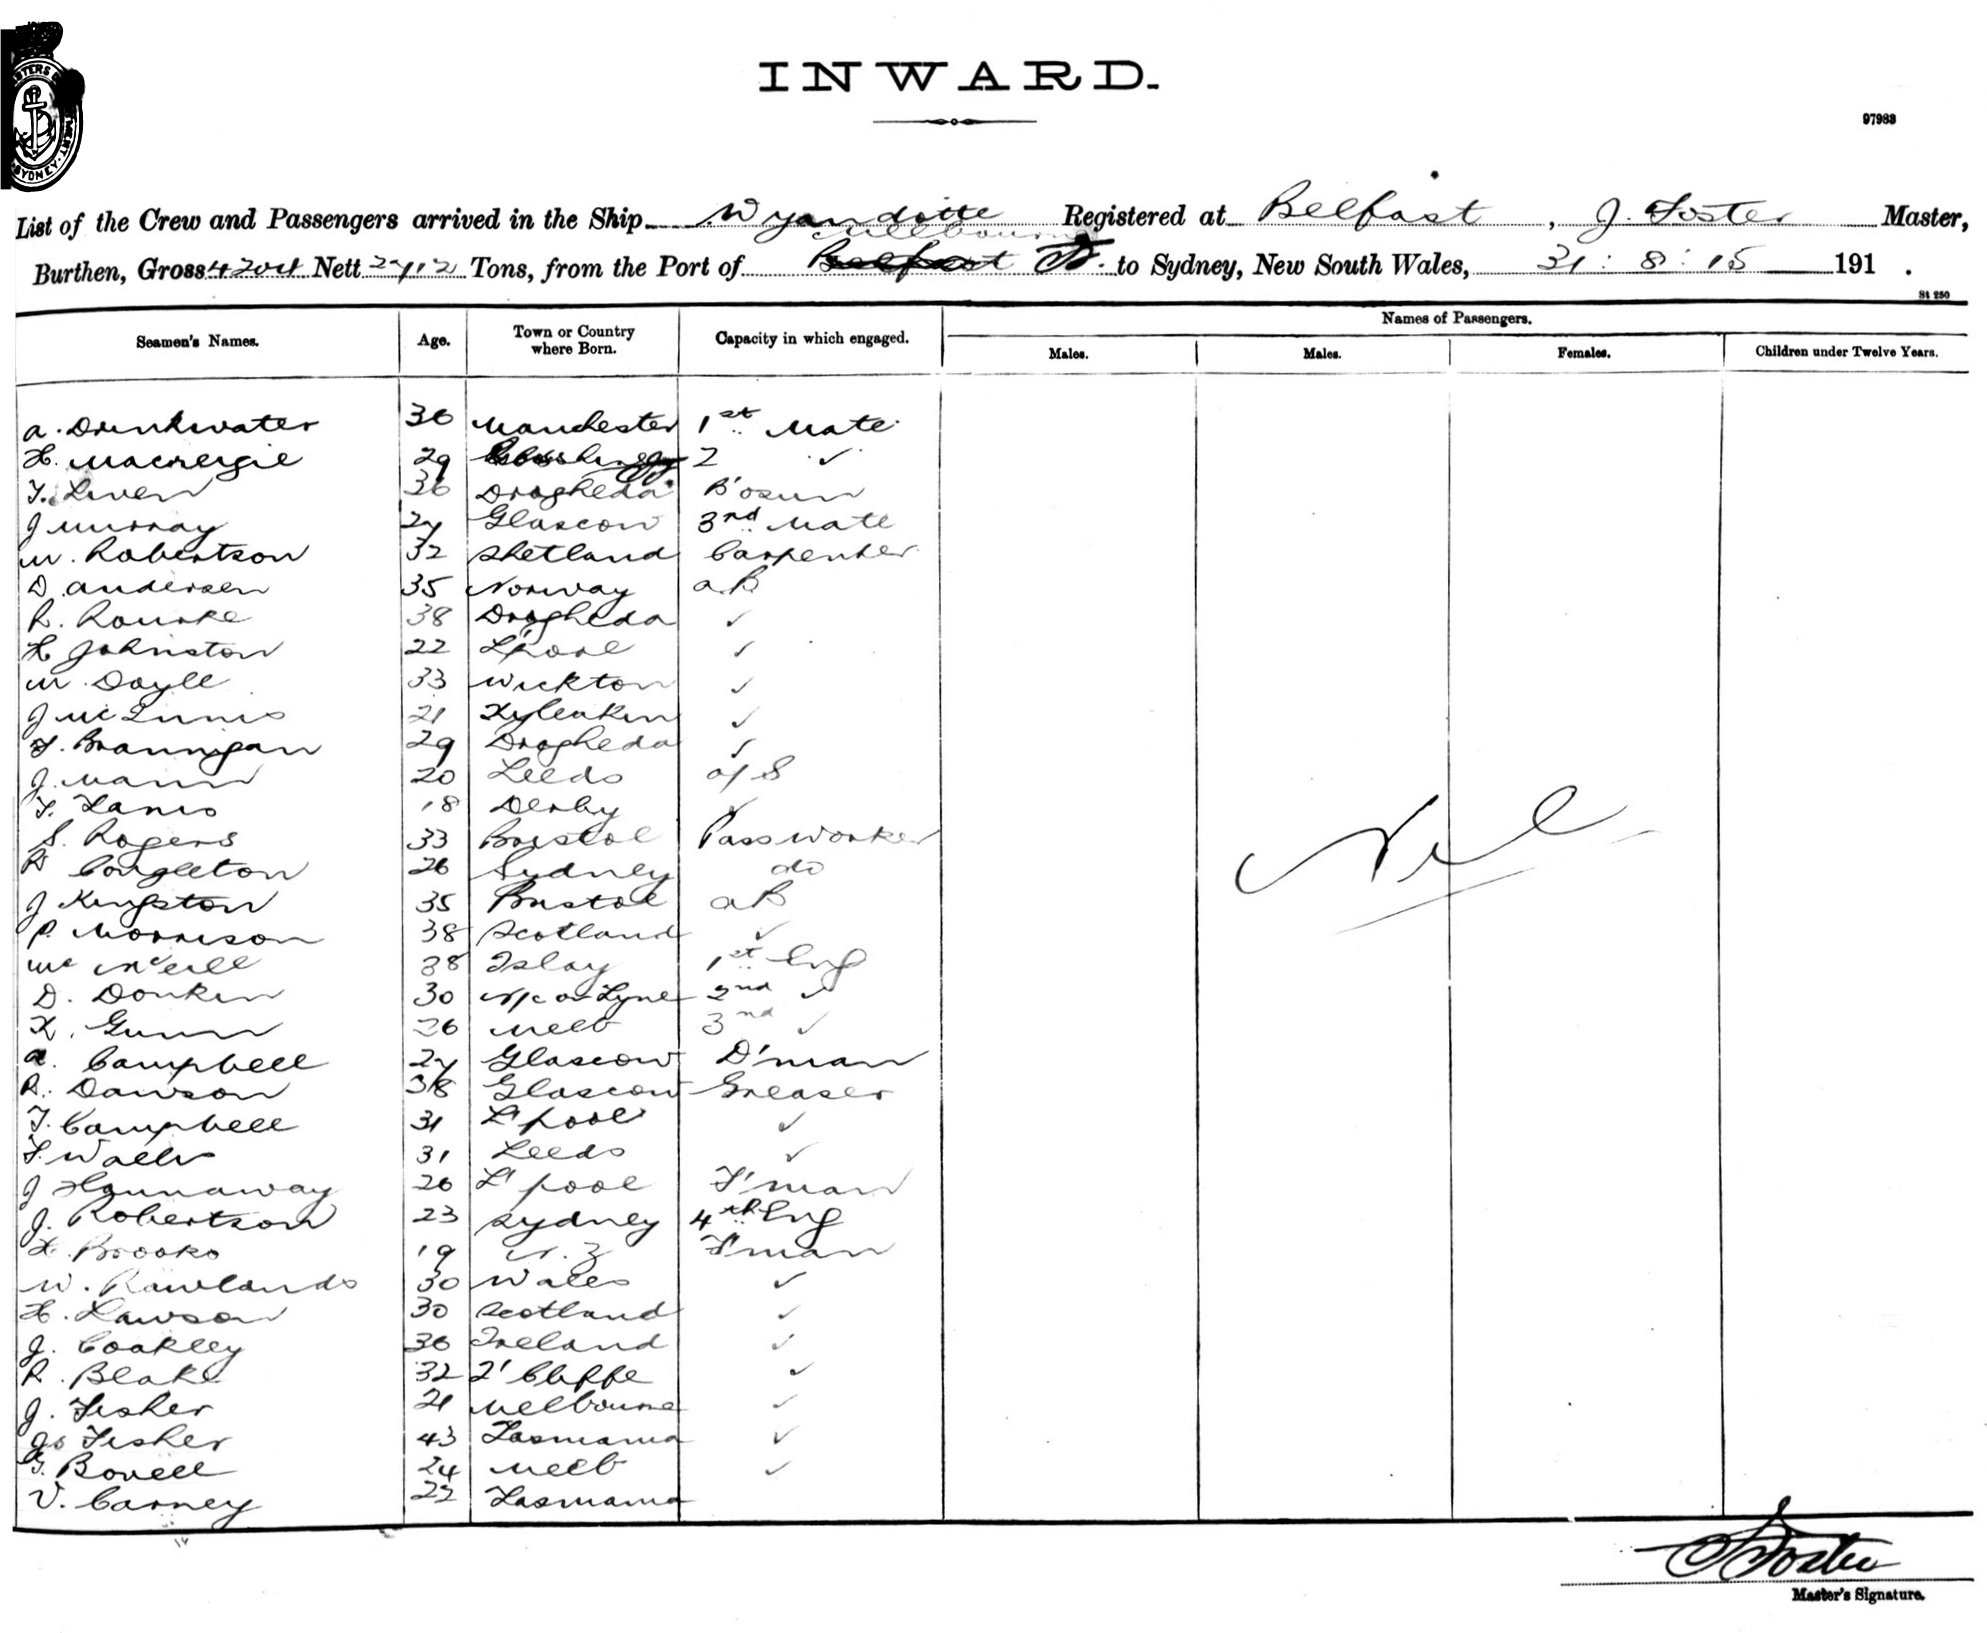 INWARD.
97983
List of the Crew and Passengers arrived in the Ship Wyandotte Registered at Belfast, J. Foster Master,
Melbourne
Burthen, Gross 4204 Nett 2712 Tons, from the Port of to Sydney, New South Wales, 31:8:15 191 .
St 250
Seamen's Names. Age. Town or Country where Born. Capacity in which engaged. Names of Passengers.
Males. Males. Females. Children under Twelve Years.
A. Drinkwater 36 Manchester 1st Mate
H. 29 2 ✓
36 Drogheda B'osun
J Murray 27 Glascow 3rd Mate
W. Robertson 32 Shetland Carpenter
D. Andersen 35 Norway AB
R. Rourke 38 Drogheda ✓
H Johnston 22 L'pool ✓
W. Doyle 33 ✓
J McInnis 21 ✓
F. Brannigan 29 Drogheda ✓
J. Mann 20 Leeds o/S
18 Derby ✓
S. Rogers 33 Bristol Passworker
Congleton 26 Sydney do
J Kingston 35 Bristol AB
P. Morrison 38 Scotland ✓
McNeill 38 Islay 1st Eng
D. Donkin 30 N/c on Tyne 2nd ✓
Gunn 26 Melb 3nd ✓
A. Campbell 27 Glascow D'man
R. Dawson 38 Glascow Greaser
T. Campbell 31 L'pool ✓
31 Leeds ✓
J Hannaway 26 L'pool F'man
J. Robertson 23 Sydney 4th Eng
H. Brooks 19 N.Z F'man
W. Rawlands 30 Wales ✓
H. Lawson 30 Scotland ✓
J. Coakley 36 Ireland ✓
R. Blake 32 ✓
J. Fisher 21 Melbourne ✓
Js Fisher 43 Tasmania ✓
Bovell 24 Melb ✓
V. Carney 22 Tasmania
Nil
J Foster
Master's Signature.